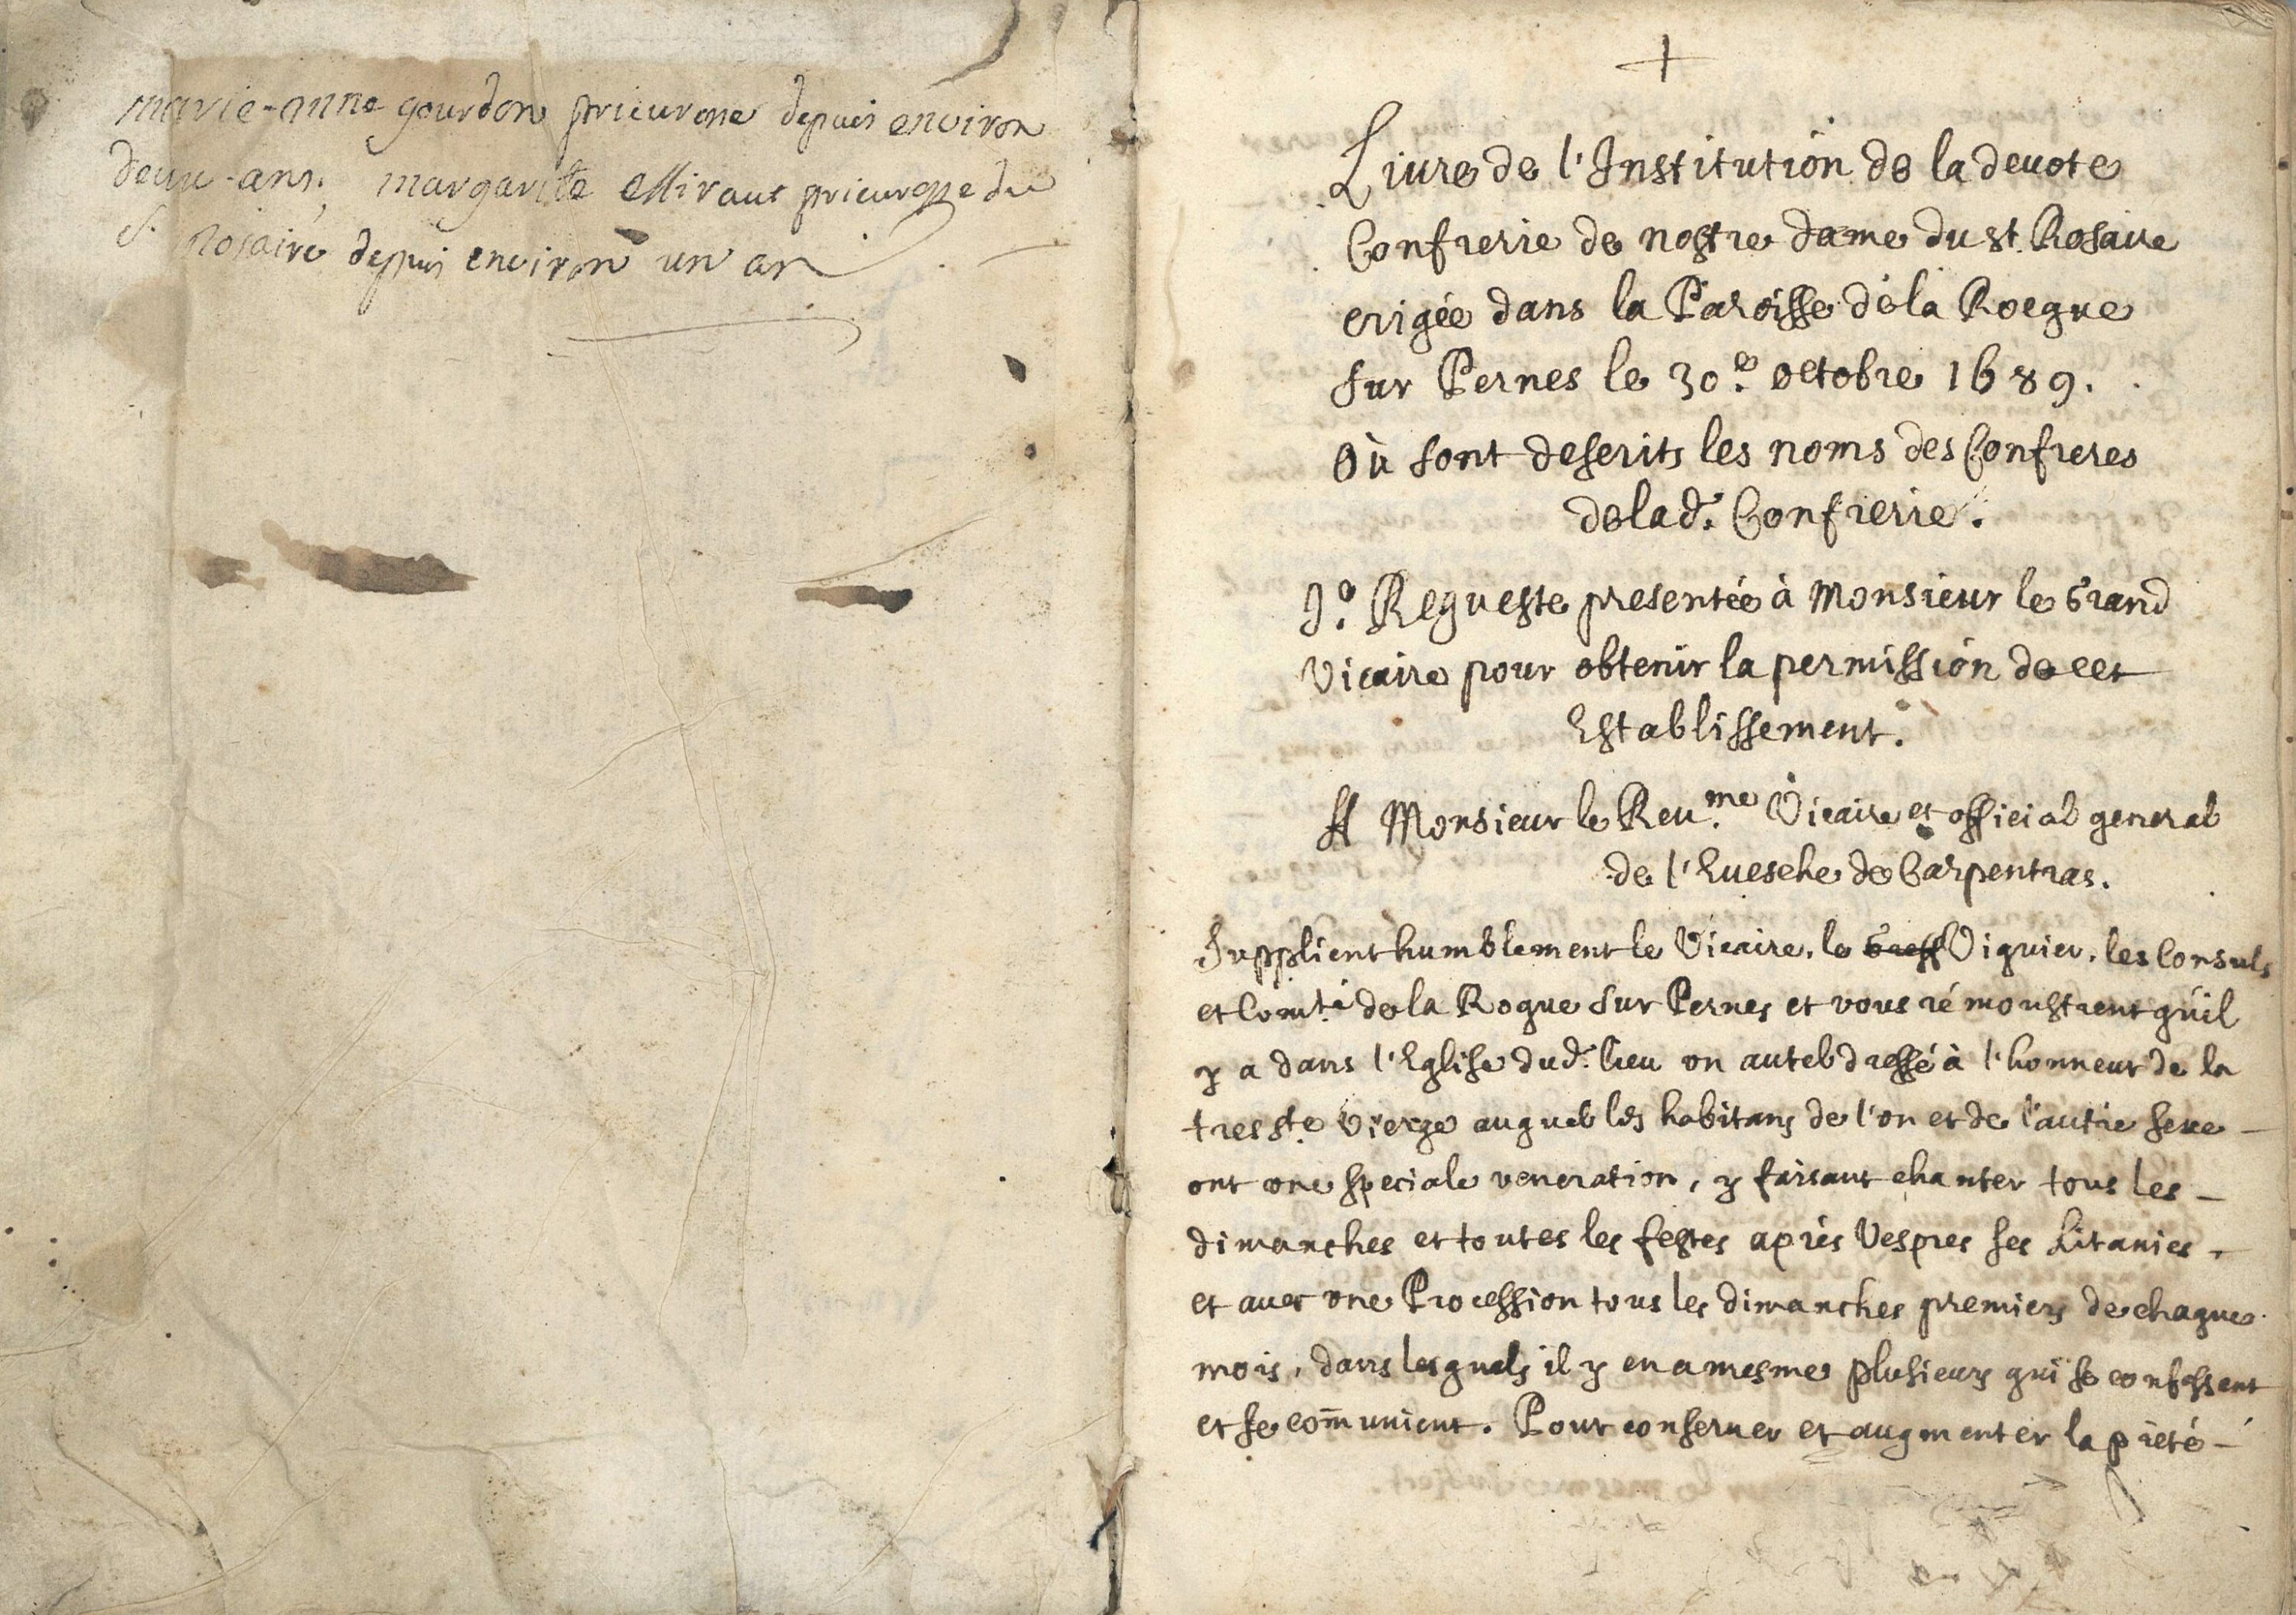 marie-anne gourdon prieuresse depuis environ
deux-ans, margarite prieuresse du
S. Rosaire depuis environ un an
+
Livre de l'Institution de la deuote
Confrerie de nostre dame du st. Rosaire
erigée dans la Paroisse de la Roque
sur Pernes le 30.e octobre 1689.
Où sont descrits les noms des Confreres
de lad. Confrerie.
J.o Requeste presentée à Monsieur le Grand
Vicaire pour obtenir la permission de cet
Establissement.
A Monsieur le Reu.me Vicaire et official general
de l'Euesche de Carpentras.
Supplient humblement le Vicaire, le Viguier, les Consuls
et Com.té de la Roque sur Pernes et vous rémonstrent qu'il
y a dans l'Eglise dud. lieu un autel dressé à l'honneur de la
tres ste Vierge auquel les habitans de l'un et de l'autre sexe
ont une speciale veneration, y faisant chanter tous les
dimanches et toutes les festes aprés Vespres ses Litanies,
et auec une Procession tous les dimanches premiers de chaque
mois, dans lesquels il y en a mesme plusieurs qui se confessent
et se com̄unient. Pour conseruer et augmenter la pieté